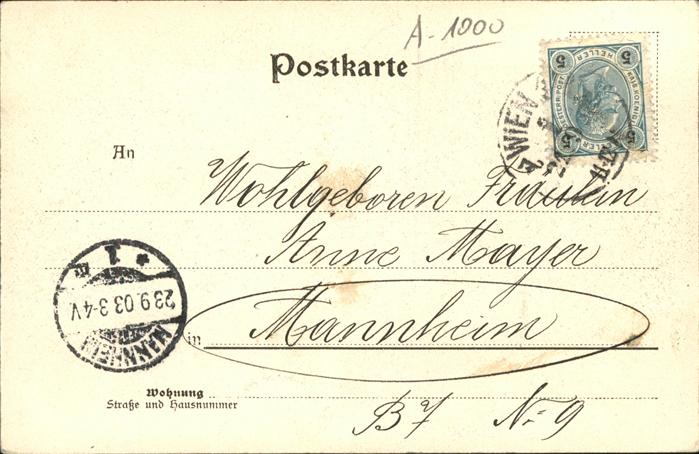 A-1000
Postkarte
5 HELLER 5
WIEN
An
Wohlgeboren Fräulein
Anne Mayer
in Mannheim
MANNHEIM
23.9.03.3-4V
* 1
Wohnung
Straße und Hausnummer
B7 Nr 9